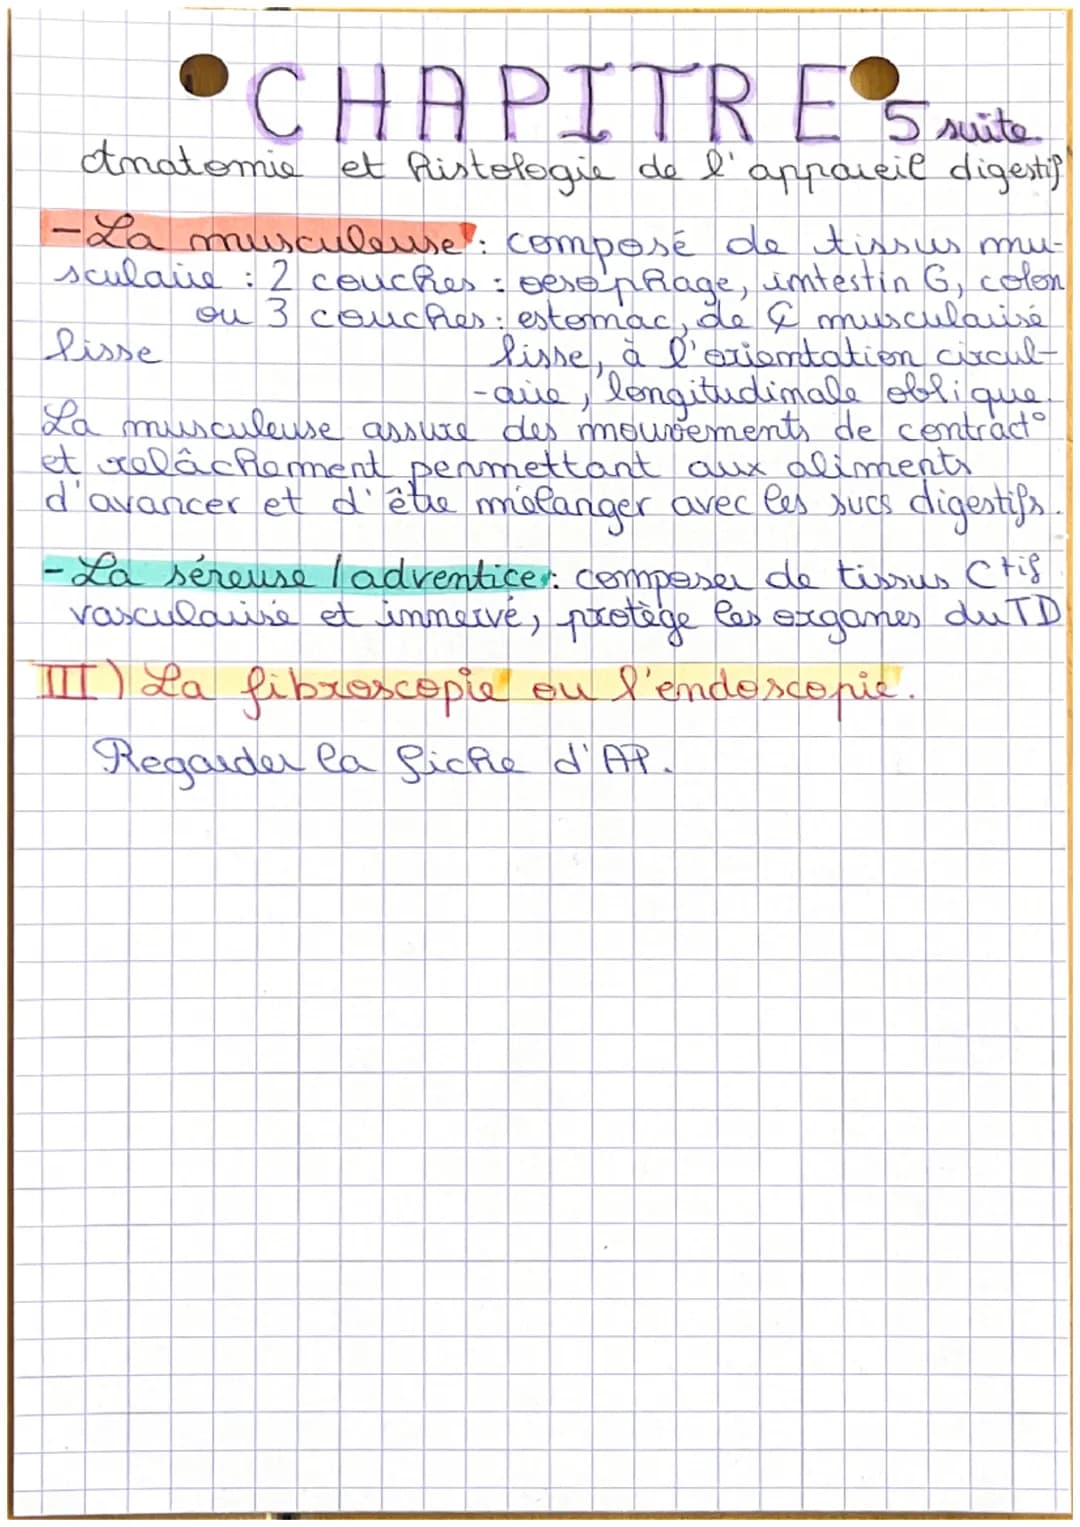 CHAPITRE 5 suite
Anatomie et histologie de l'appareil digestif
- La musculeuse : composé de tissus mu-
sculaire : 2 couches : oesophage, intestin G, colon
ou 3 couches : estomac, de ₵ muscularisé
lisse lisse, à l'orientation circul-
-aire, longitudinale oblique.
La musculeuse assure des mouvements de contract°
et relâchement permettant aux aliments
d'avancer et d'être mélanger avec les sucs digestifs.
- La séreuse / adventice : composer de tissus Ctif
vascularisé et innervé, protège les organes du TD
III) La fibroscopie ou l'endoscopie.
Regarder la fiche d'AP.